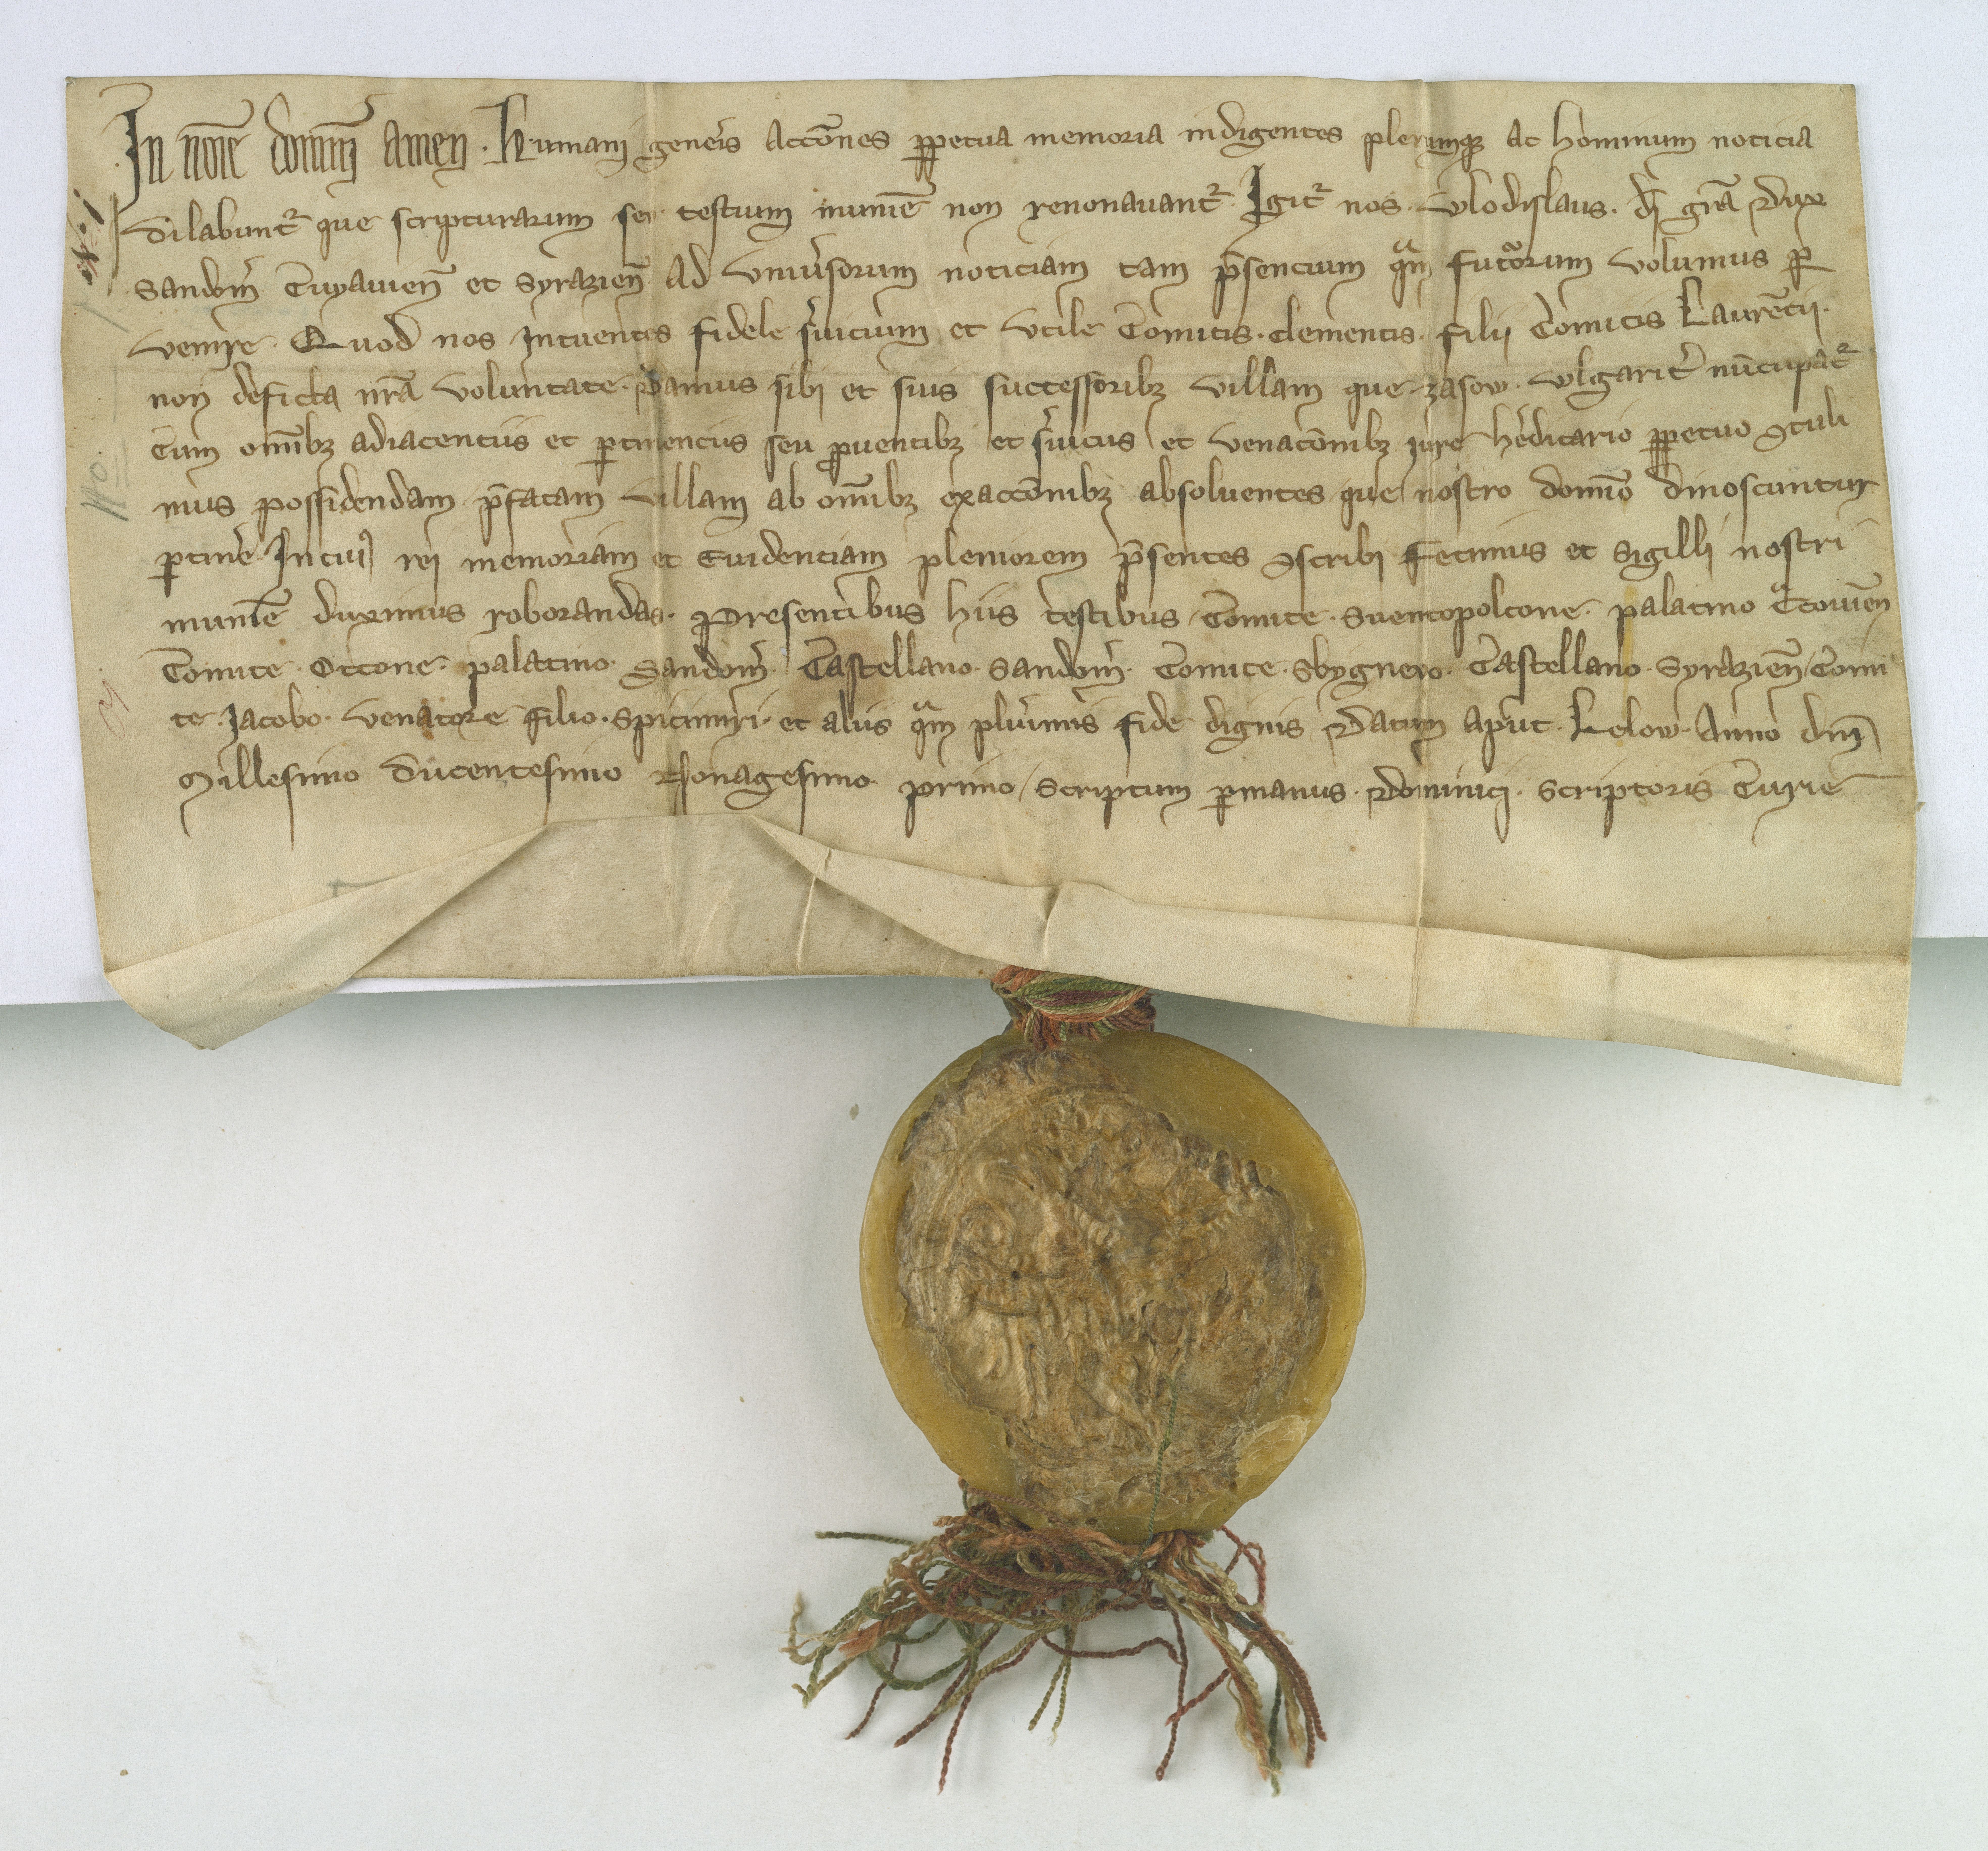 In noīe domini amen. Humani gen̄eis accōnes ꝑpetua memoria indigentes pleru̅qȝ ac hominum noticia
dilabunt᷑ que scripturarum seu testium munim̄e non renouavant᷑. Igit᷑ nos. Wlodislaus. dī gr̄a Dux
Sandom̄. Cuyauien̄ et Syrazien̄ Ad Vniu̅sorum noticiam tam p̄sencium qᵃm futᵒrorum volumus ꝑ
venire. Quod nos Intuentes fidele s̄uicium et vtile Comitis. Clementis. filii Comitis Laurēcii.
non deficta nr̄a voluntate. Damus sibi et suis successoribȝ villam que. zasow. wlgarit̄ nūcupāt᷑
Cum om̄ibȝ adiacentiis et ꝑtinenciis seu ꝓuentibȝ et s̄uiciis et venacōnibȝ iure h̄editario ꝑpetuo ꝯtuli
mus possidendam p̄fatam villam ab om̄ibȝ exaccōnibȝ absoluentes que nostro domīo dinoscuntur
ꝑtin̄e. In cuiꝰ rei memoriam et Euidenciam pleniorem p̄sentes ꝯscribi Fecimus et Sigilli nostri
munīe duximus roborandas. Presentibus hiis testibus. Comite. Suentopolcone. palatino Cᵃcouien̄
Comite. Ottone. palatino. Sandom̄. Castellano. Sandom̄. Comite. Sbygneo. Castellano. Syrazien̄. Comi
te. Jacobo. Venatore filio. Spicimiri. et aliis qᵃm plūimis fide dignis Datum aput. Lelow. Anno dn̄i
Millesimo ducentesimo Nonagesimo primo. Scriptum ꝑ manus. Dominici. Scriptoris Curie